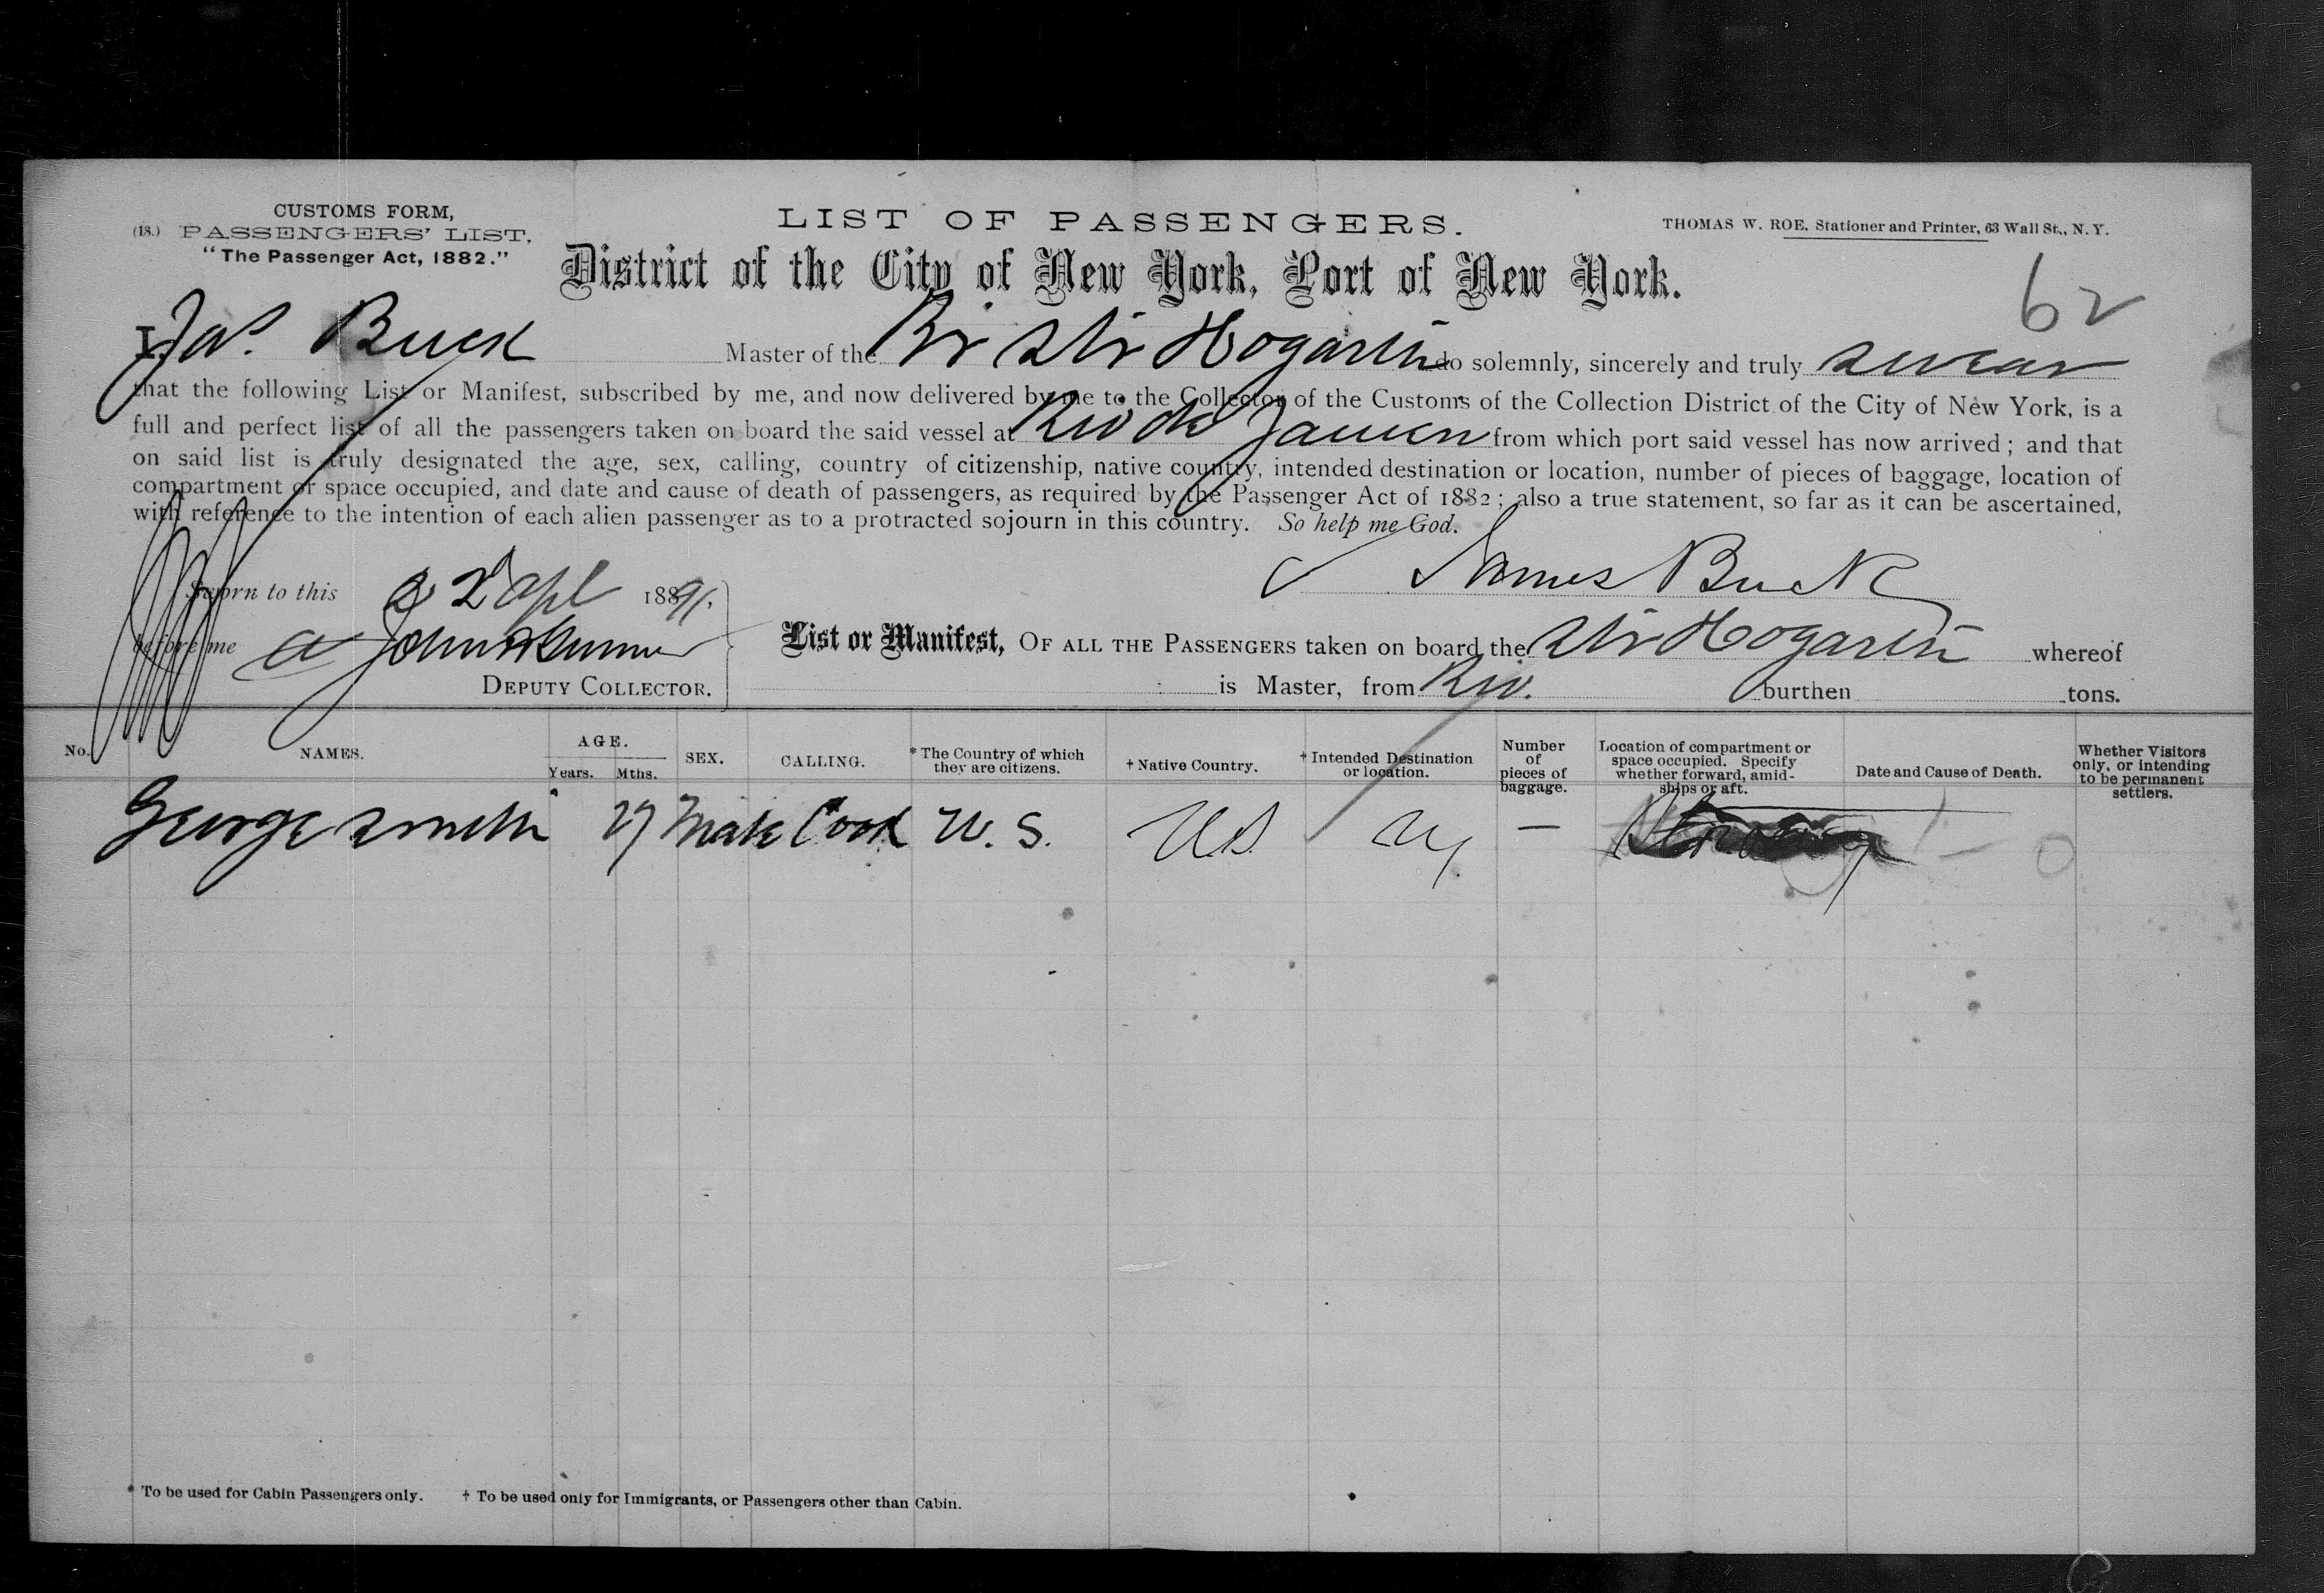 CUSTOMS FORM,
(18.) PASSENGERS' LIST.
"The Passenger Act, 1882."
LIST OF PASSENGERS.
THOMAS W. ROE, Stationer and Printer, 63 Wall St., N. Y.
District of the City of New York, Port of New York.
62
I, Jas. Buck Master of the Br Str Hogarth do solemnly, sincerely and truly swear
that the following List or Manifest, subscribed by me, and now delivered by me to the Collector of the Customs of the Collection District of the City of New York, is a
full and perfect list of all the passengers taken on board the said vessel at Rio de Janeiro from which port said vessel has now arrived; and that
on said list is truly designated the age, sex, calling, country of citizenship, native country, intended destination or location, number of pieces of baggage, location of
compartment or space occupied, and date and cause of death of passengers, as required by the Passenger Act of 1882; also a true statement, so far as it can be ascertained,
with reference to the intention of each alien passenger as to a protracted sojourn in this country. So help me God.
James Buck
Sworn to this 22 Apl 1891.
before me
DEPUTY COLLECTOR.
List or Manifest, OF ALL THE PASSENGERS taken on board the Str Hogarth whereof
is Master, from Rio. burthen tons.
No. NAMES. AGE. Years. Mths. SEX. CALLING. * The Country of which they are citizens. † Native Country. † Intended Destination or location. Number of pieces of baggage. Location of compartment or space occupied. Specify whether forward, amidships or aft. Date and Cause of Death. Whether Visitors only, or intending to be permanent settlers.
George Smith 27 Male Cook U. S. U.S. —
* To be used for Cabin Passengers only. † To be used only for Immigrants, or Passengers other than Cabin.